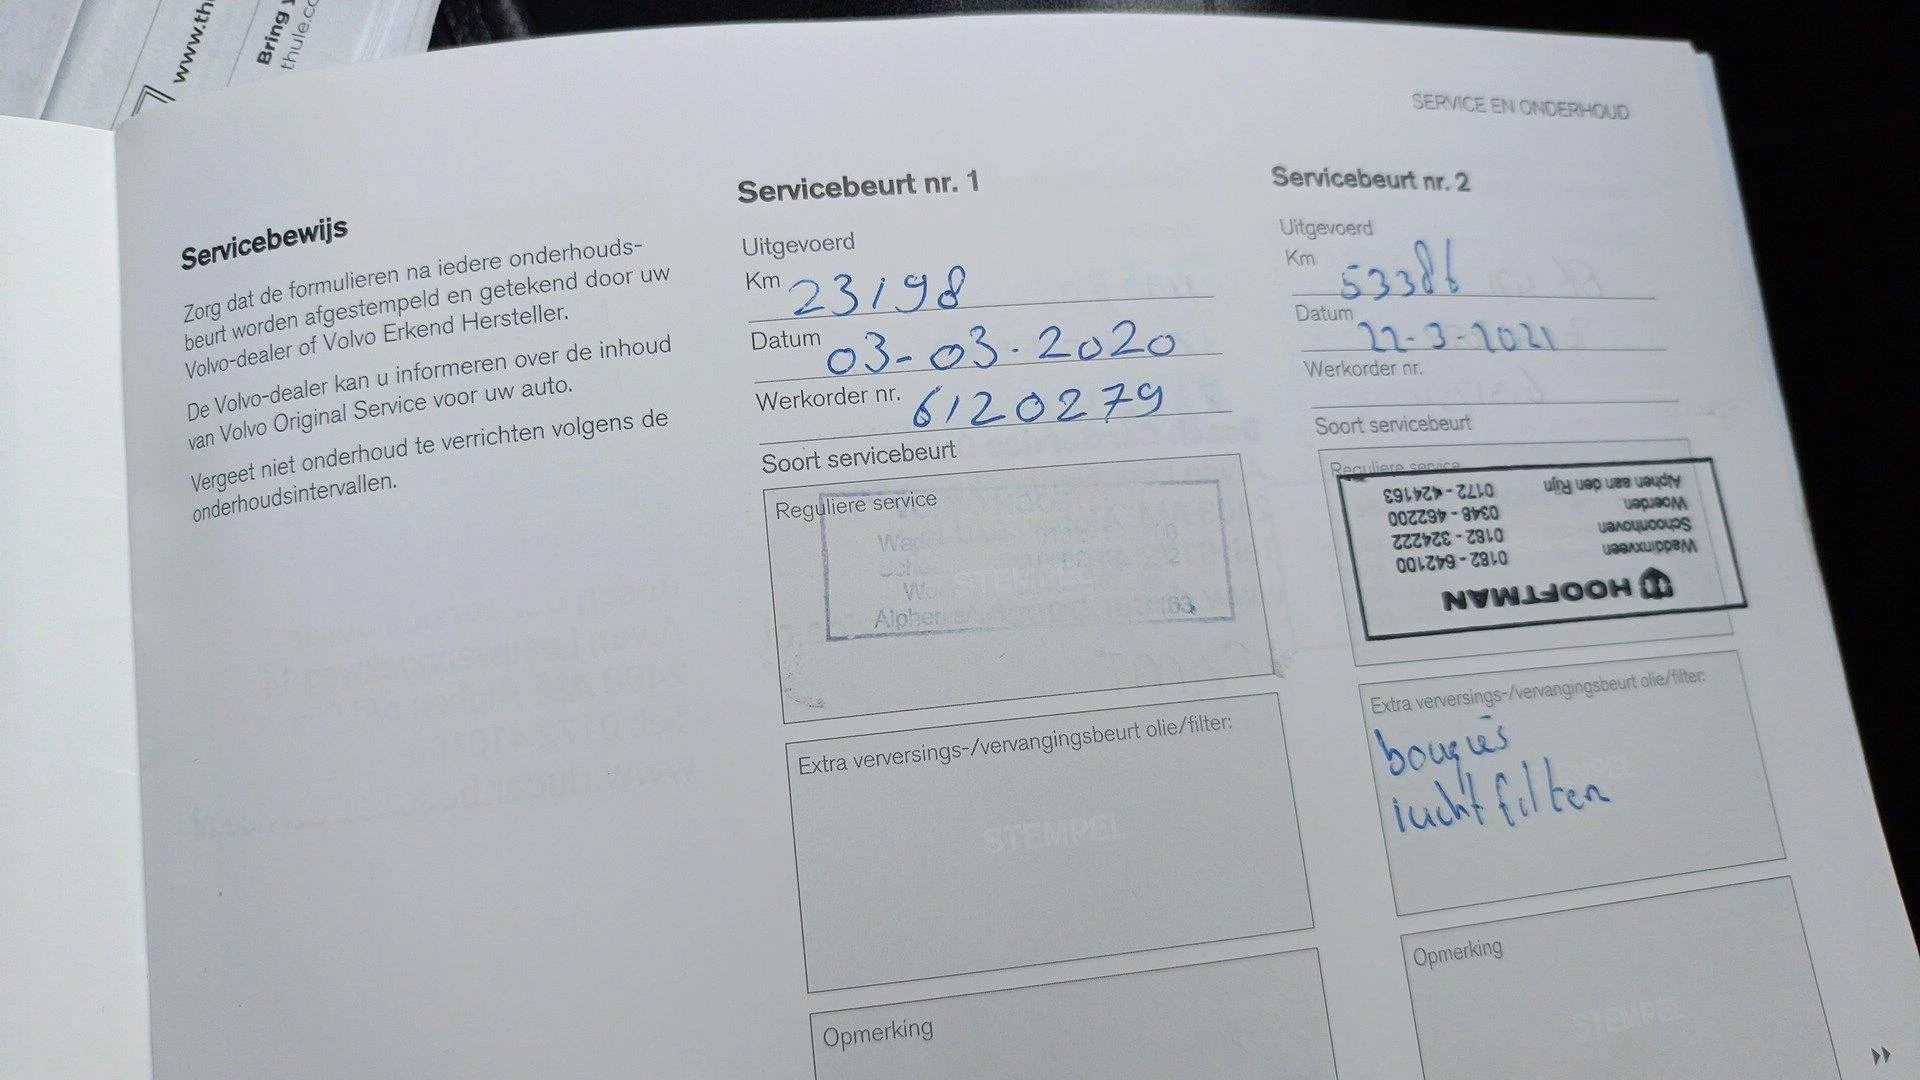 www.th
Bring
thule.co
SERVICE EN ONDERHOUD
Servicebewijs
Zorg dat de formulieren na iedere onderhouds-
beurt worden afgestempeld en getekend door uw
Volvo-dealer of Volvo Erkend Hersteller.
De Volvo-dealer kan u informeren over de inhoud
van Volvo Original Service voor uw auto.
Vergeet niet onderhoud te verrichten volgens de
onderhoudsintervallen.
Servicebeurt nr. 1
Uitgevoerd
Km 23198
Datum 03-03-2020
Werkorder nr. 6120279
Soort servicebeurt
Reguliere service
STEMPEL
Alphen
Extra verversings-/vervangingsbeurt olie/filter:
STEMPEL
Opmerking
Servicebeurt nr. 2
Uitgevoerd
Km 53386
Datum 22-3-2021
Werkorder nr.
Soort servicebeurt
Reguliere service
HOOFTMAN
Waddinxveen 0182 - 642100
Schoonhoven 0182 - 324222
Woerden 0348 - 462200
Alphen aan den Rijn 0172 - 424163
Extra verversings-/vervangingsbeurt olie/filter:
bougies
luchtfilter
Opmerking
STEMPEL